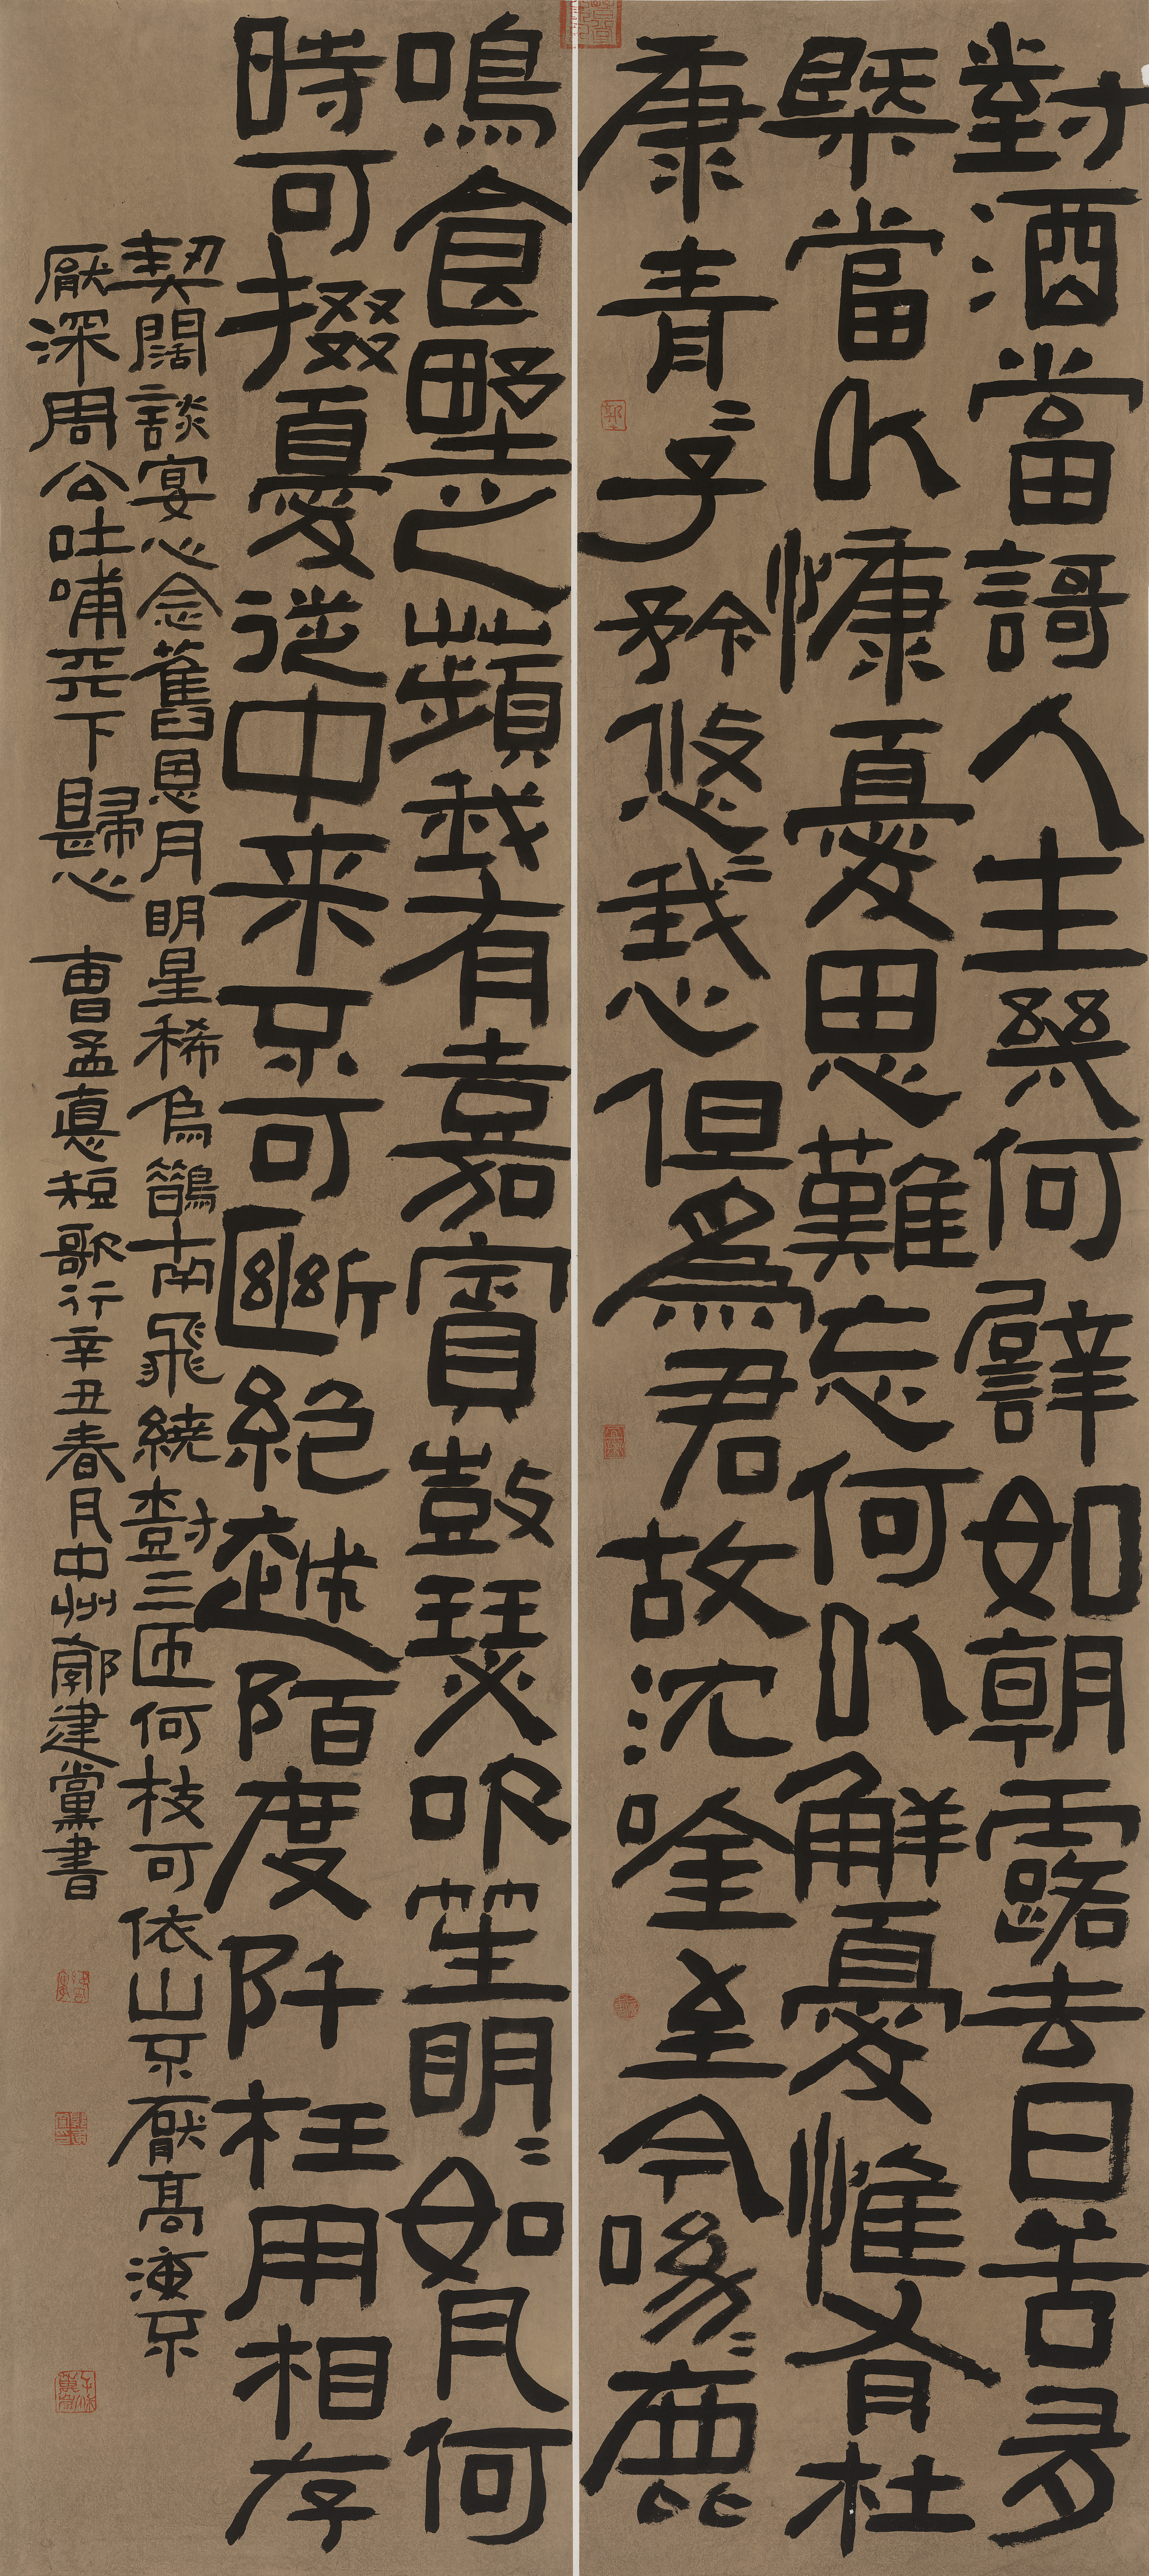 對酒當謌人生幾何譬如朝露去日苦多
槩當以慷憂思難忘何以解憂惟有杜
康青〻子矜悠〻我心但為君故沈唫至今呦〻鹿
鳴食野之蘋我有嘉賓鼓瑟吹笙明〻如月何
時可掇憂從中来不可斷絕越陌度阡枉用相存
契闊談宴心念舊恩月明星稀烏鵲南飛繞樹三匝何枝可依山不厭高海不
厭深周公吐哺天下歸心 曹孟德短歌行辛丑春月中州郭建黨書